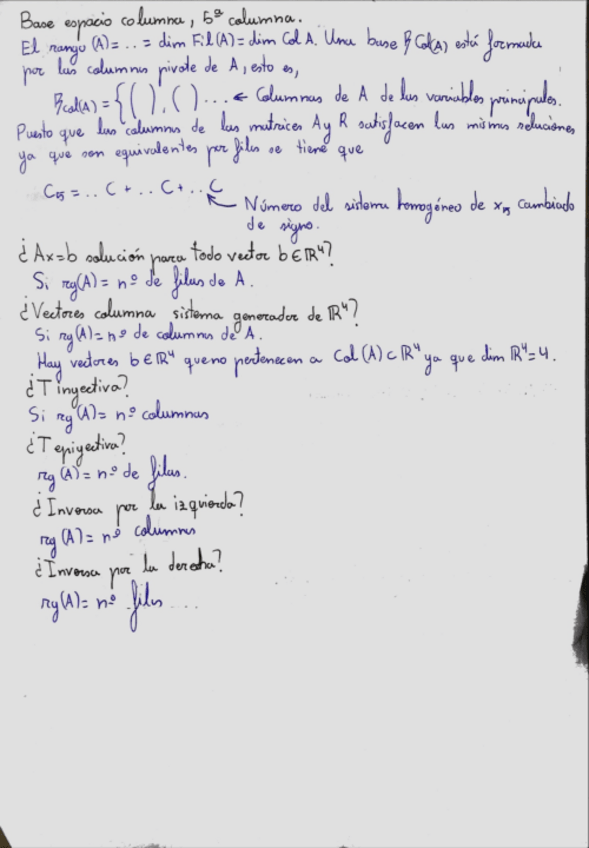 Base espacio columna, 5ª columna.
El rango (A)= .. = dim Fil(A)= dim Col A. Una base β Col(A) está formada
por las columnas pivote de A, esto es,
βcol(A) = {( ), ( ) ... ← Columnas de A de las variables principales.
Puesto que las columnas de las matrices A y R satisfacen las mismas relaciones
ya que son equivalentes por filas se tiene que
C05 = .. C + .. C + .. C
Número del sistema homogéneo de x5 cambiado
de signo.
¿Ax=b solución para todo vector b∈ℝ⁴?
Si rg(A)= nº de filas de A.
¿Vectores columna sistema generador de ℝ⁴?
Si rg(A)= nº de columnas de A.
Hay vectores b∈ℝ⁴ que no pertenecen a Col(A)⊂ℝ⁴ ya que dim ℝ⁴=4.
¿T inyectiva?
Si rg(A)= nº columnas
¿T epiyectiva?
rg(A)= nº de filas.
¿Inversa por la izquierda?
rg(A)= nº columnas
¿Inversa por la derecha?
rg(A)= nº filas ...